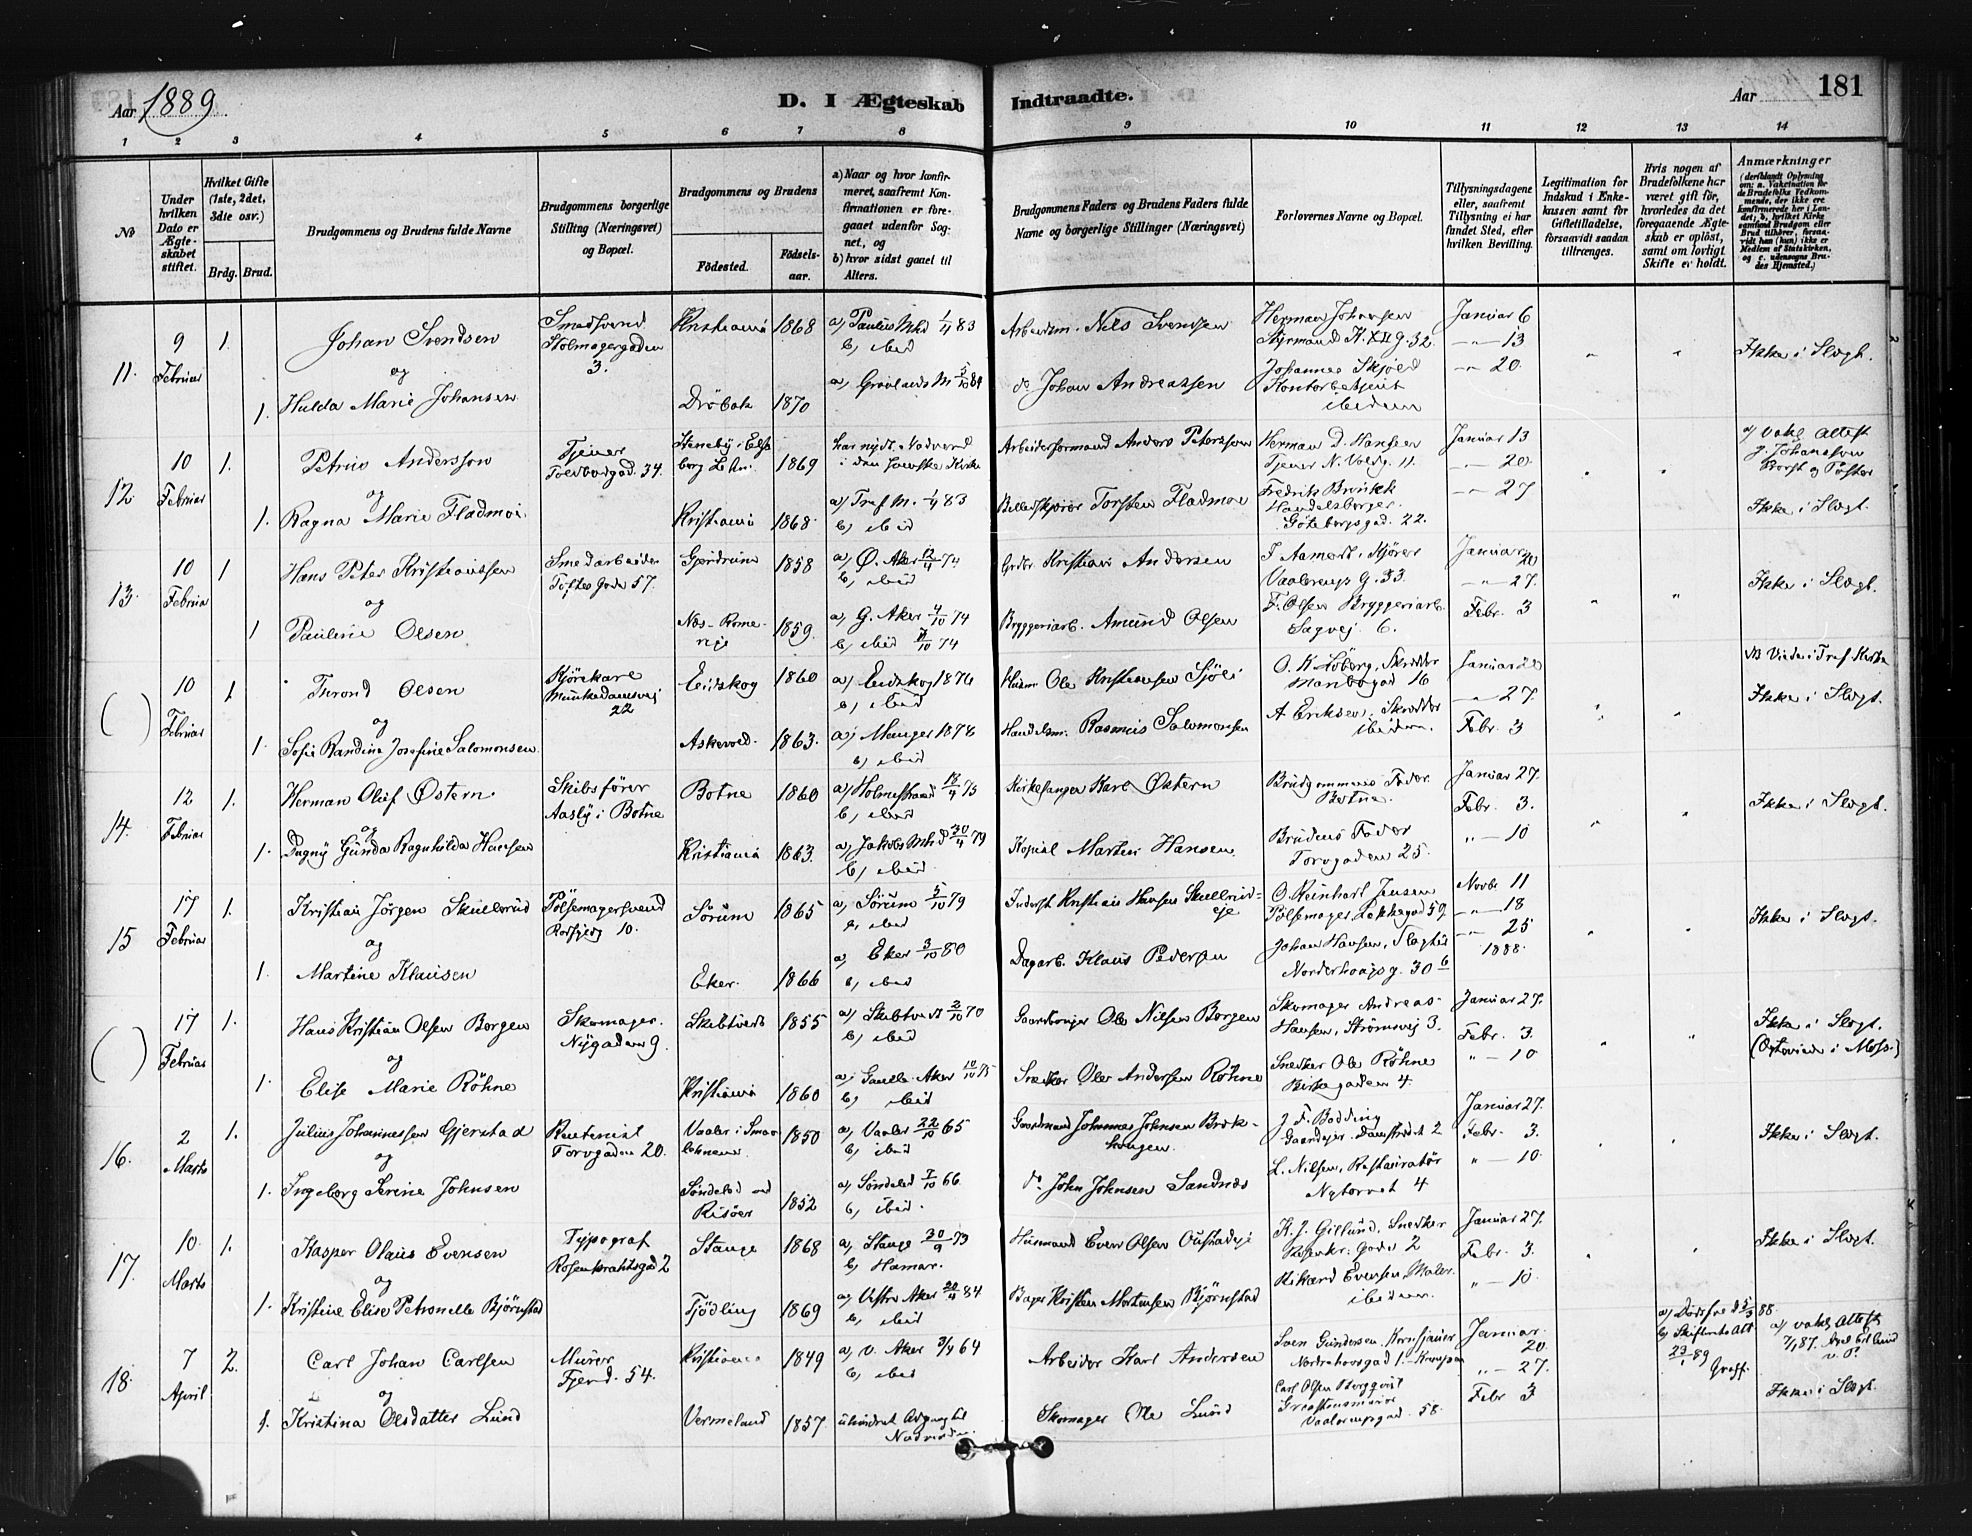 Aar 1889. D. I Ægteskab Indtraadte. Aar 181
1 2 3 4 5 6 7 8 9 10 11 12 13 14
No
Under hvilken Dato er Ægteskabet stiftet.
Hvilket Gifte (1ste, 2det, 3die osv.)
Brdg. Brud.
Brudgommens og Brudens fulde Navne
Brudgommens borgerlige Stilling (Næringsvei) og Bopæl.
Brudgommens og Brudens
Födested. Födsels-aar.
a) Naar og hvor konfirmeret, saafremt Konfirmationen er foregaaet udenfor Sognet, og
b) hvor sidst gaaet til Alters.
Brudgommens Faders og Brudens Faders fulde Navne og borgerlige Stillinger (Næringsvei)
Forlovernes Navne og Bopæl.
Tillysningsdagene eller, saafremt Tillysning ei har fundet Sted, efter hvilken Bevilling.
Legitimation for Indskud i Enkekassen samt for Giftetilladelse, forsaavidt saadan tiltrænges.
Hvis nogen af Brudefolkene har været gift för, hvorledes da det foregaaende Ægteskab er oplöst, samt om lovligt Skifte er holdt.
Anmærkninger
(deriblandt Oplysning om: a. Vakcination for de Brudefolks Vedkommende, der ikke ere konfirmerede her i Landet; b. hvilket Kirkesamfund Brudgom eller Brud tilhörer, forsaavidt han (hun) ikke er Medlem af Statskirken, og c. udensogns Brudes Hjemsted.)
11. 9 Februar 1. Johan Svendsen Smedsvend Stolmagergaden 3. Kristiania 1868 a) Paulus Mhd 1/4 83 b) ibid Arbeidsm. Nils Svendsen Herman Johansen Styrmand K. XII G. 32. Januar 6 " 13 " 20 Ikke i Slægt.
og
1. Hulda Marie Johansen Dröbak 1870 a) Grönlands M 5/10 84 do Johan Andreassen Johannes Skjöld Kontorbetjent ibidem
12. 10 Februar 1. Petrus Andersson Tjener Toldbodgad. 34. 1869 har nydt Nadverd i den svenske Kirke Arbeidsformand Anders Petersson Herman D. Hansen Tjener N. Voldg. 11. Januar 13 " 20. " 27 a) Vakc. Attest J. Johansson
og
1. Ragna Marie Fladmoe Kristiania 1868. a) Tref M. 1/4 83 b) ibid Torsten Fladmoe Fredrik Handelsborger Göteborgsgad. 22. Ikke i Slægt.
13. 10 Februar 1 Hans Peter Kristianssen Smedarbeider Toftes Gade 57. Gjerdrum 1858 a) Ø. Aker 12/4 74 b) ibid Grdbr. Kristian Andersen J. Aamodt, Kjörer Vaalerengg. 33. Januar 20 " 27. Febr. 3 Ikke i Slægt.
og
1 Pauline Olsen Næs-Romerige 1859. a) G. Aker 4/10 74 b) ibid 11/10 74 Bryggeriarb. Amund Olsen F. Olsen Bryggeriarb. Sagvej. 6.
( ) 10 Februar 1 Trond Olsen Kjörekarl Munkedamsvej 22 Eidskog 1860 a) Eidskog 1874 b) ibid Husm. Ole Kristiansen Sjöli O. K. Löberg, Skrædder Mariboegad 16 Januar 20 " 27. Febr. 3 NB Viede i Tref Kirke Ikke i Slægt.
og
1. Sofie Randine Josefine Salomonsen Askevold. 1863. a) Manger 1878 b) ibid Handelsm. Rasmus Salomonsen A. Eriksen, Skrædder ibidem.
14. 12 Februar 1. Herman Oluf Østern Skibsförer Aasly i Botne Botne 1860 a) Holmestrand 18/4 75 b) ibid Kirkesanger Karl Østern Brudgommens Fader Botne. Januar 27. Febr. 3. " 10 Ikke i Slægt.
og
1. Dagny Gunda Ragnhilda Hansen Kristiania 1863. a) Jakobs Mhd 30/4 79 b) ibid Kopist Martin Hansen. Brudens Fader Torvgaden 25.
15 17 Februar 1. Kristian Jörgen Skullerud Pölsemagersvend 10. Sörum 1865 a) Sörum 5/10 79 b) ibid Inderst Kristian Hansen Skullerudeje O. Reinhart Jensen Pölsemager, Lakkegad 59. Novbr 11 " 18 " 25 1888. Ikke i Slægt.
og
1. Martine Klausen Eker. 1866 a) Eker 3/10 80 b) ibid Dagarb. Klaus Pedersen Johan Hansen, Slagter Norderhovsg. 30 6
( ) 17 Februar 1. Hans Kristian Olsen Borgen Skomager. Nygaden 9. Skibtvedt 1855 a) Skibtvedt 2/10 70 b) ibid Gaardbruger Ole Nilsen Borgen Skomager Andreas Hansen, Strömsvej 3. Januar 27. Febr. 3. " 10 Ikke i Slægt. (Ogsaa viede i Moss)
og
1. Elise Marie Röhne Kristiania 1860 a) Gamle Aker 10/10 75 b) ibid Snedker Ole Andersen Röhne Snedker Ole Röhne Kirkegaden 4
16. 2 Marts 1. Julius Johannessen Gjerstad Rentenist Torvgaden 20. Vaaler i Smaalehnene 1850 a) Vaaler 22/10 65 b) ibid Gaardmand Johannes Johnsen J. F. Bödding Gaardejer. Damstrædet 2 Januar 27. Febr. 3. " 10. Ikke i Slægt.
og
1. Ingeborg Serine Johnsen Söndeled ved Risöer 1852 a) Söndeled 7/10 66 b) ibid. do John Johnsen Sandnæs L. Nilsen, Restauratör Nytorvet 4
17. 10. Marts 1. Kasper Olaus Evensen Typograf Rosenkrantzgad 2 Stange 1868 a) Stange 30/9 73 b) Hamar. Husmand Even Olsen Oustadeje K. J. Gillund. Snedker Rosenkr. Gade 2 Januar 27. Febr. 3. " 10 Ikke i Slægt.
og
1. Kristine Elise Petronelle Björnstad Tjödling 1869 a) Vestre Aker 20/4 84 b) ibid Bager Kristen Mortensen Björnstad Rikard Evensen, Maler. ibidem.
18. 7 April 2. Carl Johan Carlsen Murer Fjerd. 54. Kristiania 1849 a) V. Aker 3/4 64 b) ibid Arbeider Karl Andersen Sven Gundersen Nordrehovsgad 1. Januar. 20. " 27. Febr 3 a) Dödsfald 5/3 88. b) Skifteretsatt 23/1 89 a) Vakc. Attest 7/1 87.
og
1. Kristina Olsdatter Lund Vermeland 1857. uhindret Adgang til Nadverden Skomager Ole Lund Carl Olsen Bergqvist Vaalerengsgad. 58. Ikke i Slægt.